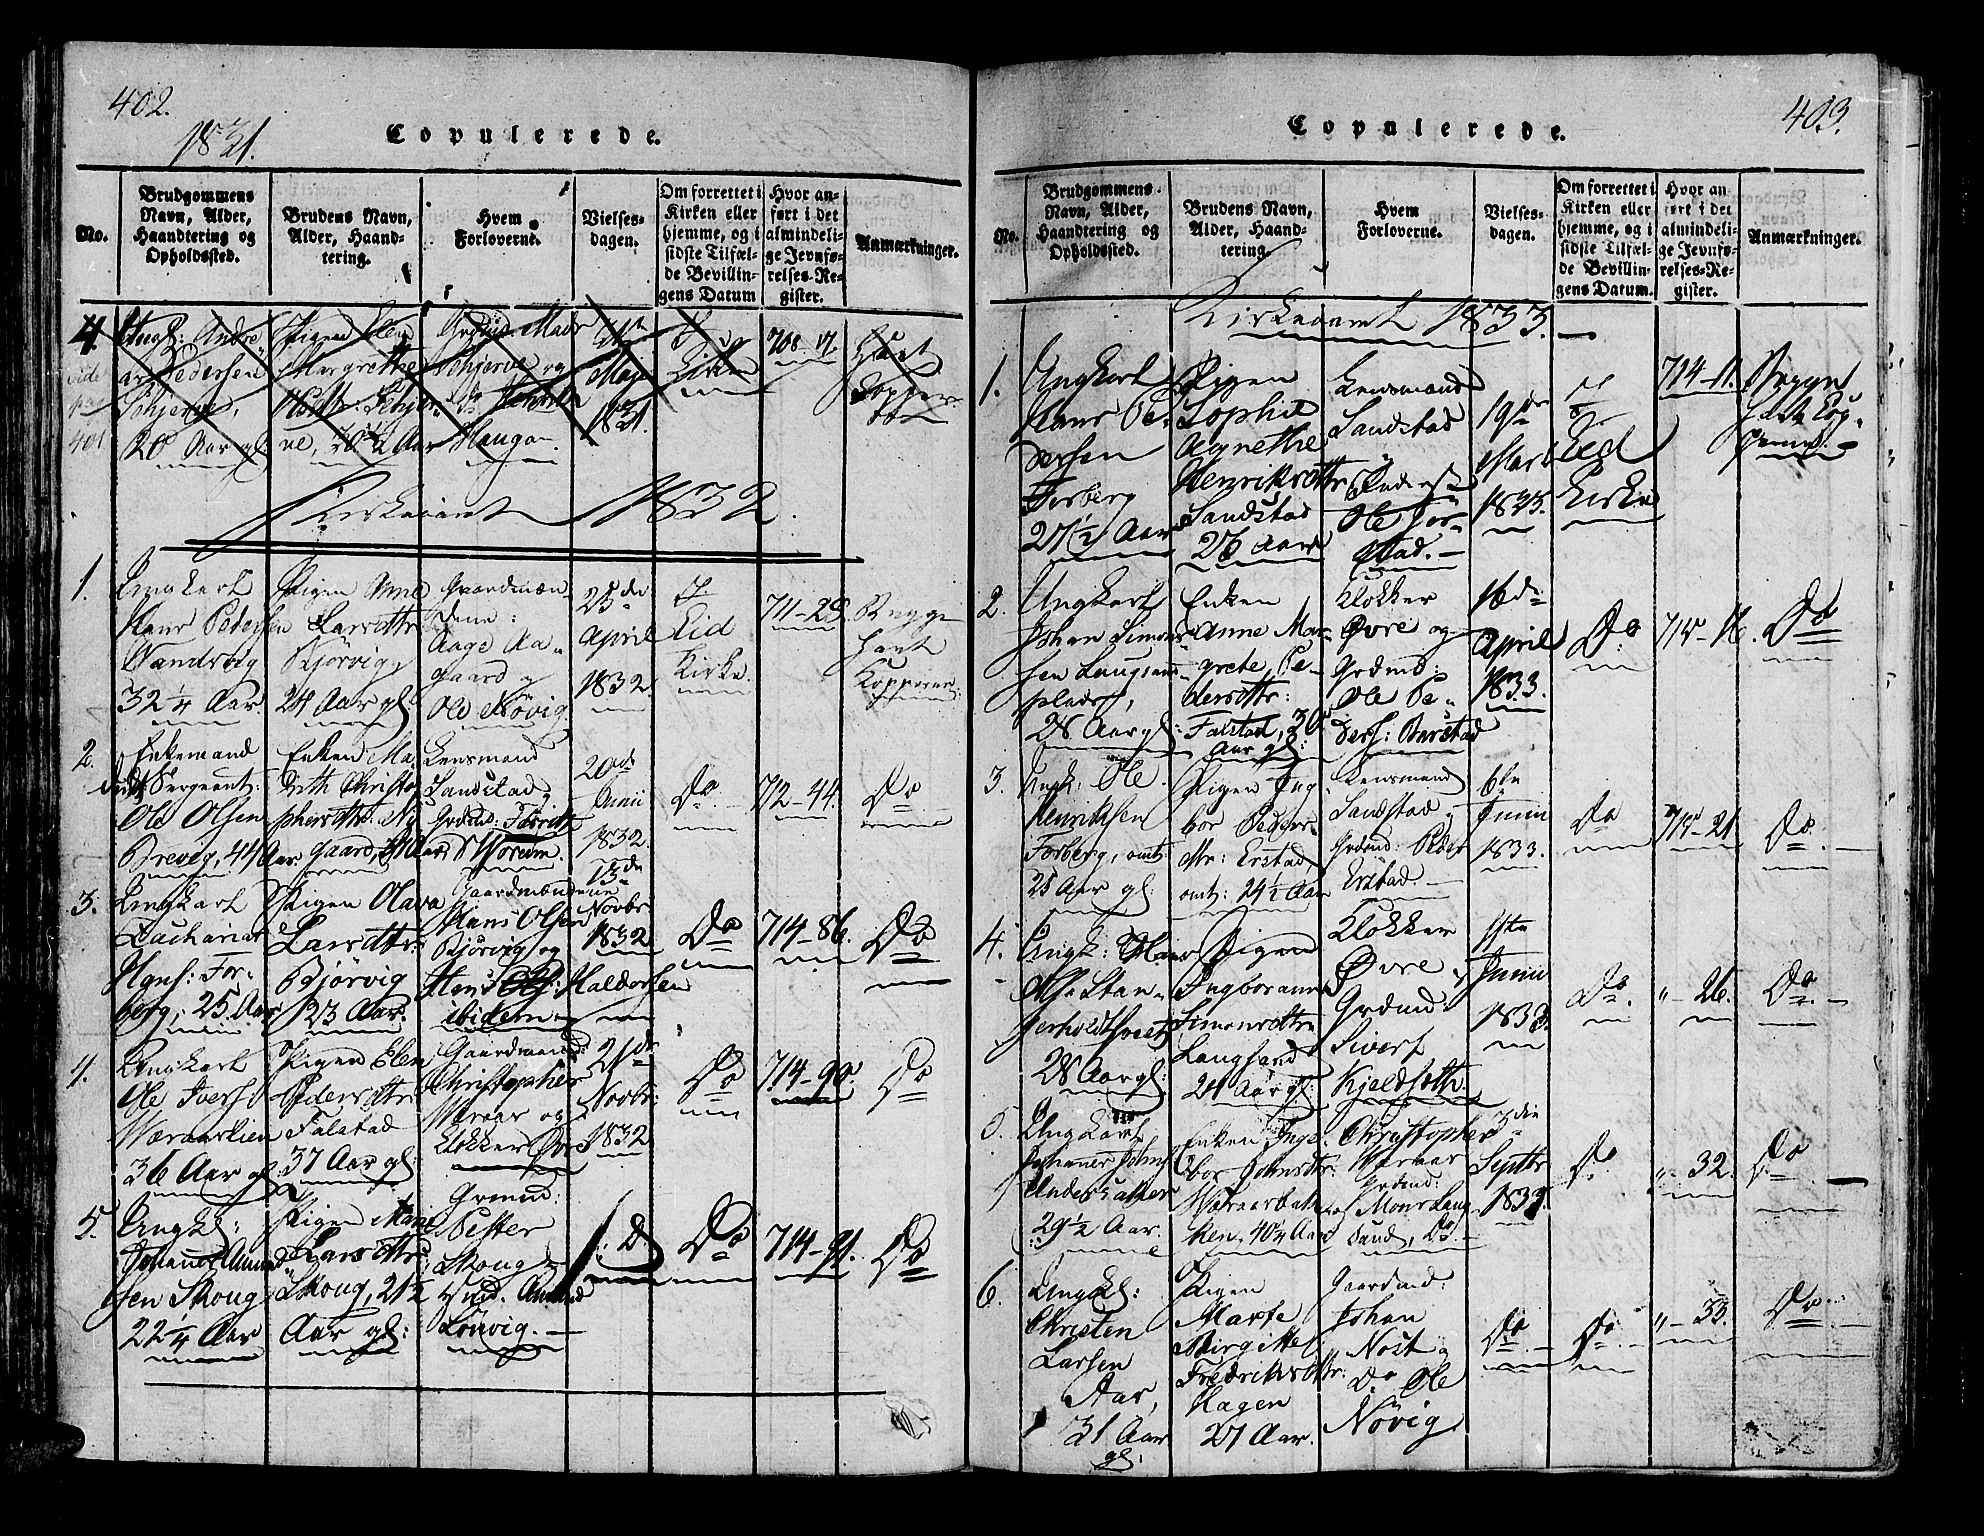 402.
1831.
Copulerede.
No.
Brudgommens
Navn, Alder,
Haandtering og
Opholdssted.
Brudens Navn,
Alder, Haand-
tering.
Hvem
Forloverne.
Vielses-
dagen.
Om forrettet i
Kirken eller
hjemme, og i
sidste Tilfæl-
de Bevillin-
gens Datum
Hvor an-
ført i det
almindeli-
ge Jevnfø-
relses-Re-
gister.
Anmærkninger.
4.
vide
pag
401
Ungk: Andre
as Pedersen
Schjerve,
20 Aar gl
Pigen Elen
Margrethe
Schjer-
ve, 20½ Aar
Mads
Schjerve og
Haugan
21de
Maji
1831.
Kirken
708-17.
Havt
Kopper
Kirkeaaret 1832.
1.
Ungkarl
Hans Pedersen
32¼ Aar.
Pigen Anne
Larsdttr
Bjørvig,
24 Aar gl
Gaardmæn
dene:
Aage Aa-
gaard og
Ole Nøvig
25de
April
1832.
I
Eid
Kirke.
711-28.
Begge
havt
Kopperne
2.
Enkemand
Sergeant:
Ole Olsen
Brevig, 44 Aar.
Enken Ma
rith Christo
phersdttr: Ny
gaard,
Lensmand
Sandstad
Grdmd:
20de
Junii
1832
Do
712-44.
Do
3.
Ungkarl
Zacharias
Hansf: For-
berg, 25 Aar
Pigen Olava
Larsdttr:
Bjørvig
23 Aar.
Gaardmændene
Hans Olsen
Bjørvig og
Haldorsen
ibidem
13de
Novbr
1832
Do
714-86.
Do
4.
Ungkarl
Ole Iversf
Wæraaslien
36 Aar gl
Pigen Elen
Pedersdttr
Falstad
37 Aar gl
Gaardmand
Christopher
Wæraas og
Klokker Øvre
21de
Novbr:
1832
Do
714-90.
Do
5.
Ungkl:
Johannes
sen Skoug
22¼ Aar
Pigen
Larsdttr
Skoug, 21½
Aar gl:
Grdmd:
Petter
Skoug
Lønvig.
D
Do
714-91.
Do
403.
Copulerede.
No.
Brudgommens
Navn, Alder,
Haandtering og
Opholdssted.
Brudens Navn,
Alder, Haand-
tering.
Hvem
Forloverne.
Vielses-
dagen.
Om forrettet i
Kirken eller
hjemme, og i
sidste Tilfæl-
de Bevillin-
gens Datum.
Hvor an
ført i det
almindeli-
ge Jevnfø-
relses-Re-
gister.
Anmærkninger.
Kirkeaaret 1833.
1.
Ungkarl
Hans Pe-
dersen
Forberg
27½ Aar
Pigen
Sophie
Agnethe
Henriksdttr
Sandstad
26 Aar
Lensmand
Sandstad
Ole
stad.
19de
Marts
1833.
I
Eid
Kirke
714-11.
Begge
havt Kop-
perne.
2.
Ungkarl
Johan Simon-
sen Laugsand-
pladsf,
28 Aar gl:
Enken
Anne Mar
grete, Pe-
dersdttr:
Falstad, 30
Aar gl:
Klokker
Øvre og
Grdmd:
Ole Pe-
dersf: Barstad
16de
April
1833.
Do
715-16.
Do
3.
Ungk: Ole
Henriksen
Forberg, omt:
25 Aar gl:
Pigen Inge
bor Peders
dttr: Erstad
omt: 24½ Aar
Lensmand
Sandstad
Grdmd: Peder
Erstad.
6te
Junii
1833.
Do
715-21.
Do.
4.
Ungk:
28 Aar gl:
Pigen
Ingbor anne
Simonsdttr
Langsand
24 Aar gl:
Klokker
Øvre
Grdmd:
Sivert
Kjeldsothe
Junii
1833.
Do.
"-26.
Do.
5.
Ungkarl
Johannes Johns
29½ Aar.
Enken Inge
bor Johnsdttr:
Wæraasbak
ken, 40¼ Aar
Christopher
Wæraas
Grdmd:
Mons Laug
sand, Do.
3die
Septbr
1833.
Do
"-32.
Do
6.
Ungkl:
Christen
Larsen
Aar,
31 Aar
gl.
Pigen
Marte
Birgitte
Fredriksdttr:
Hagen
27 Aar.
Gaardmd:
Johan
Nost
Do Ole
Nøvig
Do
Do
"-33.
Do